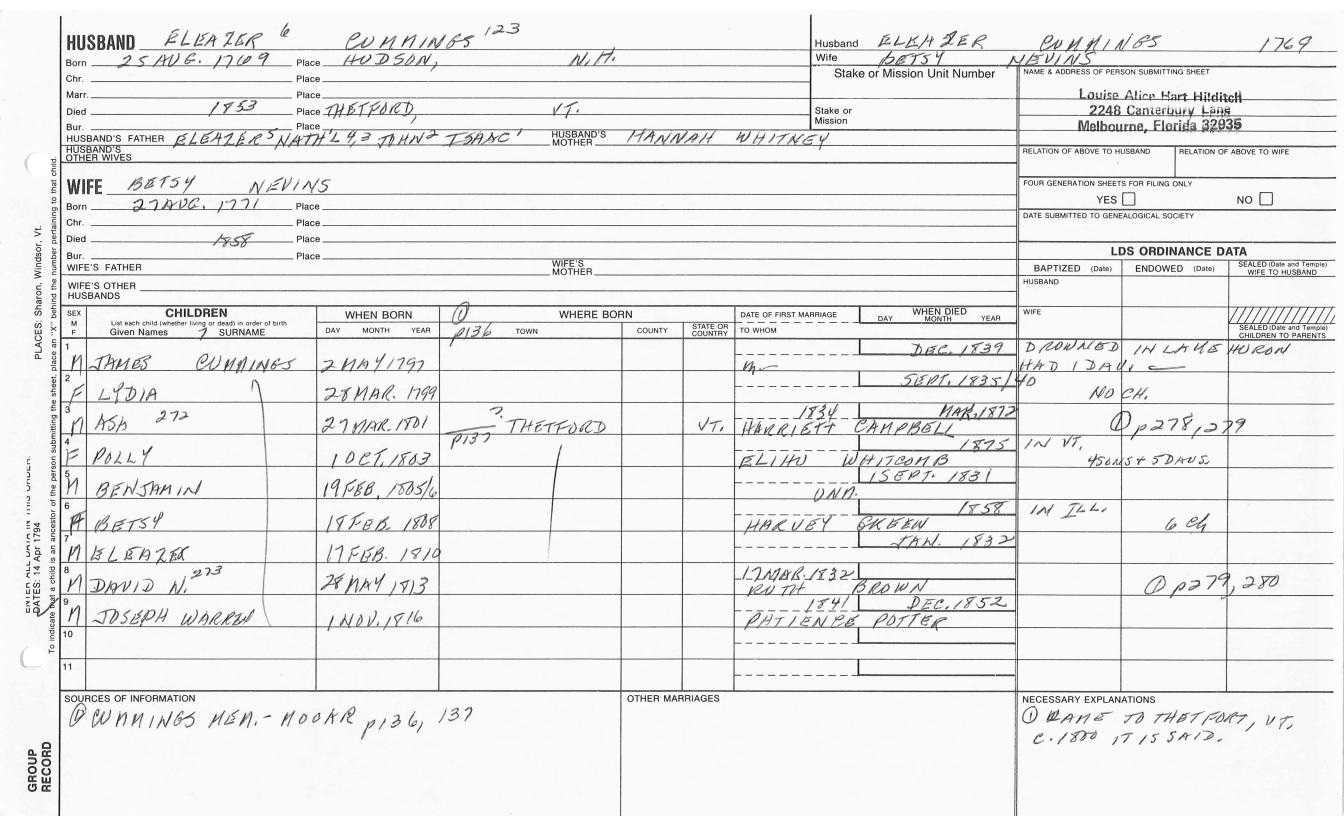 HUSBAND ELEAZER 6 CUMMINGS 123
Born 25 AUG. 1769 Place HUDSON, N.H.
Chr. Place
Marr. Place
Died 1853 Place THETFORD, VT.
Bur. Place
HUSBAND'S FATHER ELEAZER 5 NATH'L 4,3 JOHN 2 ISAAC 1 HUSBAND'S MOTHER HANNAH WHITNEY
HUSBAND'S OTHER WIVES
Husband ELEAZER CUMMINGS 1769
Wife BETSY NEVINS
Stake or Mission Unit Number
Stake or Mission
NAME & ADDRESS OF PERSON SUBMITTING SHEET
Louise Alice Hart Hilditch
2248 Canterbury Lane
Melbourne, Florida 32935
RELATION OF ABOVE TO HUSBAND RELATION OF ABOVE TO WIFE
FOUR GENERATION SHEETS FOR FILING ONLY
YES NO
DATE SUBMITTED TO GENEALOGICAL SOCIETY
WIFE BETSY NEVINS
Born 27 AUG. 1771 Place
Chr. Place
Died 1858 Place
Bur. Place
WIFE'S FATHER WIFE'S MOTHER
WIFE'S OTHER HUSBANDS
LDS ORDINANCE DATA
BAPTIZED (Date) ENDOWED (Date) SEALED (Date and Temple) WIFE TO HUSBAND
HUSBAND
WIFE
SEALED (Date and Temple) CHILDREN TO PARENTS
SEX M F
CHILDREN
List each child (whether living or dead) in order of birth
Given Names 7 SURNAME
WHEN BORN
DAY MONTH YEAR
WHERE BORN
① p136 TOWN COUNTY STATE OR COUNTRY
DATE OF FIRST MARRIAGE
TO WHOM
WHEN DIED
DAY MONTH YEAR
1 M JAMES CUMMINGS 2 MAY 1797 m DEC. 1839 DROWNED IN LAKE HURON
HAD 1 DAU.
2 F LYDIA 28 MAR. 1799 SEPT. 1835/40 NO CH.
3 M ASA 272 27 MAR. 1801 ? p137 THETFORD VT. 1834 HARRIETT CAMPBELL MAR. 1872 ① p278, 279
4 F POLLY 1 OCT. 1803 ELIHU WHITCOMB 1875 IN VT.
4 SONS + 5 DAUS.
5 M BENJAMIN 19 FEB. 1805/6 UNM. 1 SEPT. 1831
6 F BETSY 18 FEB. 1808 HARVEY GREEN 1858 IN ILL. 6 ch
7 M ELEAZER 17 FEB. 1810 JAN. 1832
8 M DAVID N. 273 28 MAY 1813 17 MAR. 1832 RUTH BROWN ① p279, 280
9 M JOSEPH WARREN 1 NOV. 1816 1841 PATIENCE POTTER DEC. 1852
10
11
SOURCES OF INFORMATION
① CUMMINGS MEM. - MOOAR p136, 137
OTHER MARRIAGES
NECESSARY EXPLANATIONS
① CAME TO THETFORT, VT.
c. 1800 IT IS SAID.
GROUP RECORD
DATES: 14 Apr 1794
PLACES: Sharon, Windsor, Vt.
To indicate that a child is an ancestor of the person submitting the sheet, place an "X" behind the number pertaining to that child.